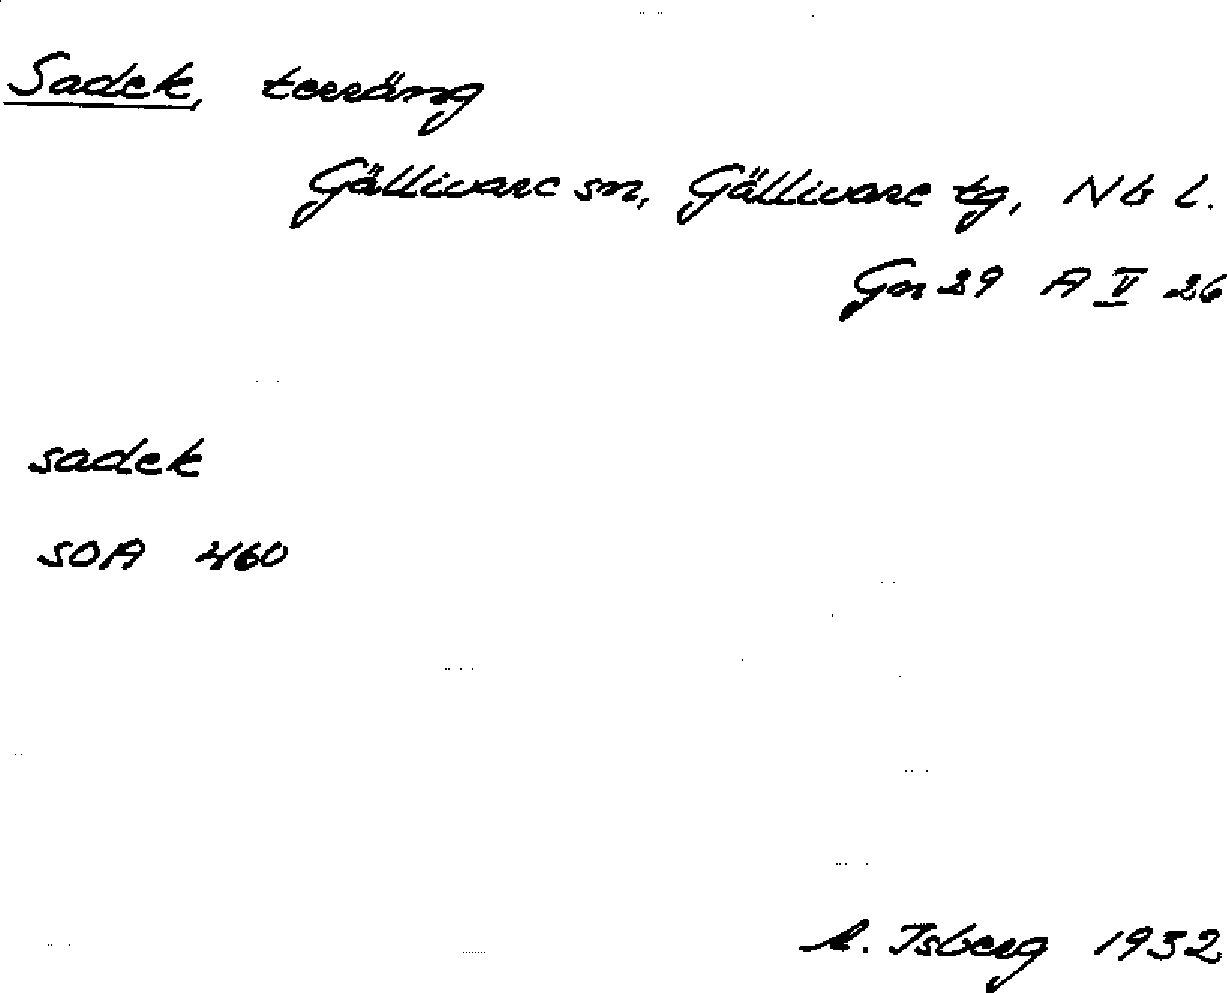 Sadek, terräng
Gällivare sn, Gällivare tg, Nb l.
Gn 29 A V 26
sadek
SOA 460
A. Isberg 1932